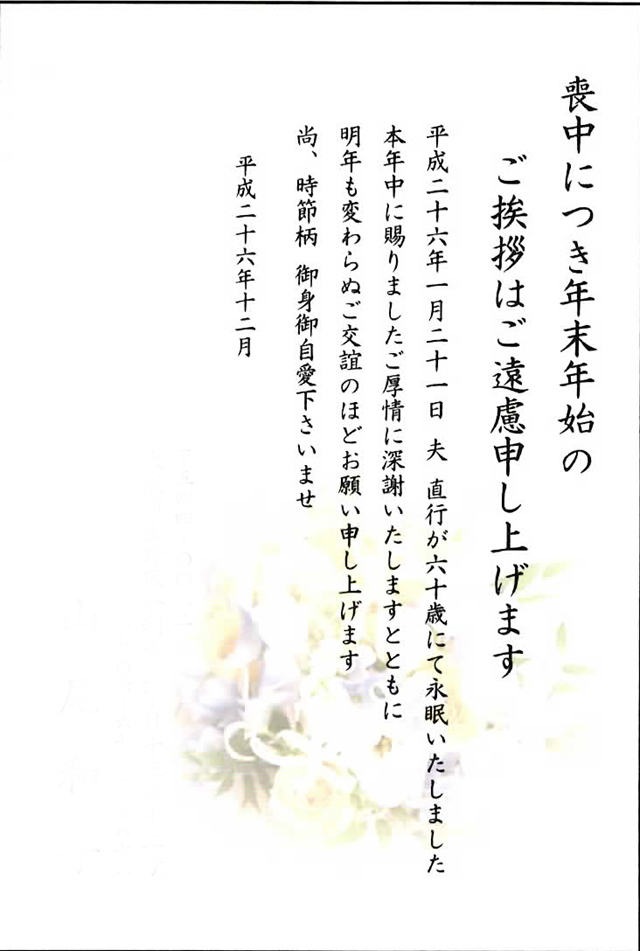 喪中につき年末年始の
ご挨拶はご遠慮申し上げます
平成二十六年一月二十一日 夫 直行が六十歳にて永眠いたしました
本年中に賜りましたご厚情に深謝いたしますとともに
明年も変わらぬご交誼のほどお願い申し上げます
尚、時節柄 御身御自愛下さいませ
平成二十六年十二月